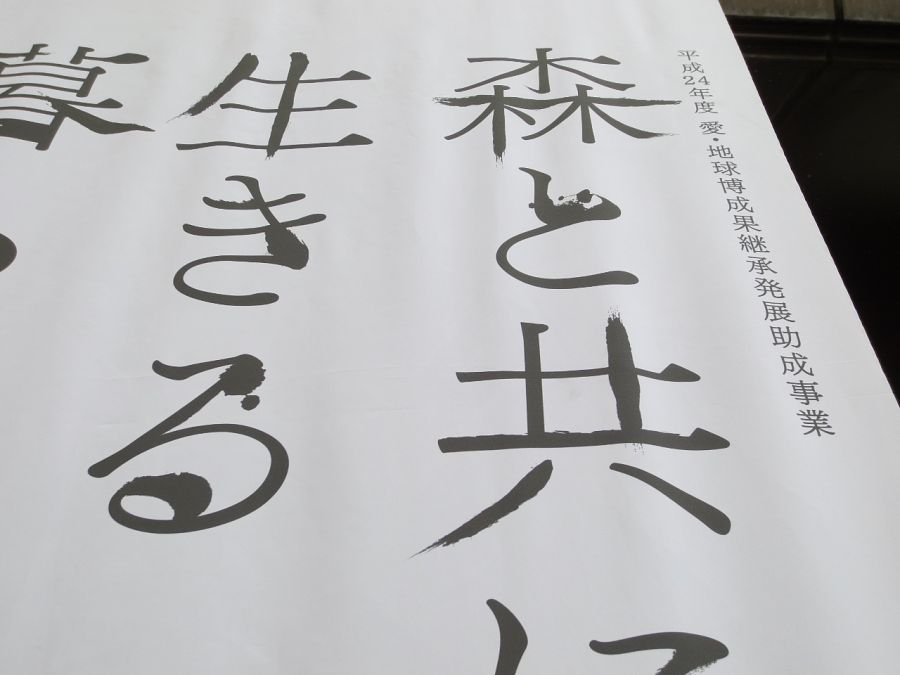 平成24年度 愛・地球博成果継承発展助成事業
森と共に
生きる
暮